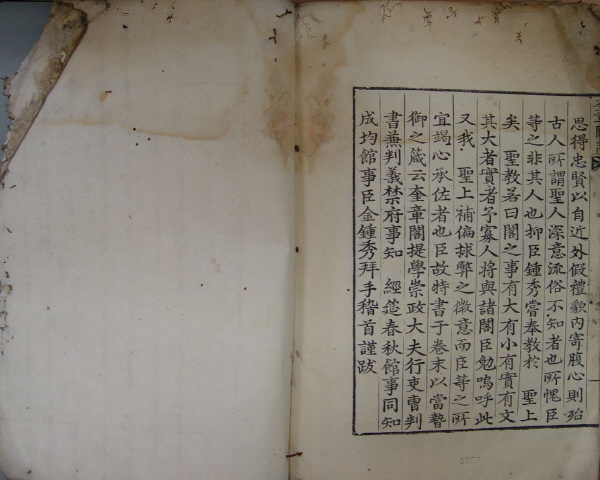 思得忠賢以自近外假禮貌內寄腹心則殆
古人所謂聖人深意流俗不知者也所愧臣
等之非其人也抑臣鍾秀嘗奉教於 聖上
矣 聖教若曰閣之事有大有小有實有文
其大者實者予寡人將與諸閣臣勉嗚呼此
又我 聖上補偏捄弊之微意而臣等之所
宜竭心承佐者也臣故特書于卷末以當暬
御之箴云奎章閣提學崇政大夫行吏曹判
書兼判義禁府事知 經筵春秋館事同知
成均館事臣金鍾秀拜手稽首謹跋